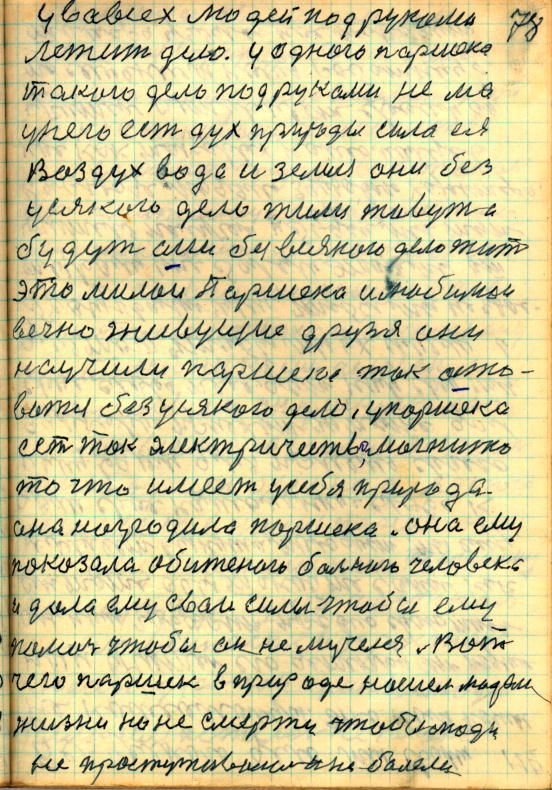 у всех людей под руками 78
лежит дело. у одного паршека
такого дело под руками не ма
унего ест дух природы сила ея
Воздух вода и земля они без
усякого дело жили живут а
будут они без всякого дело жит
это милои Паршека илюбимои
вечно живущие друзя они
научили паршека так оста-
ватся без усякого дело, упаршека
ест ток электричества, магнито
то что имеет усебя природа
она नаградила паршека. она ему
показала обиженого больного человека
и дала ему сваи силы чтобы ему
помоч чтобы он не мучелся. Вот
чего паршек вприроде нашел людям
жизни но не смерти чтобы люди
не простуживалис и не болели